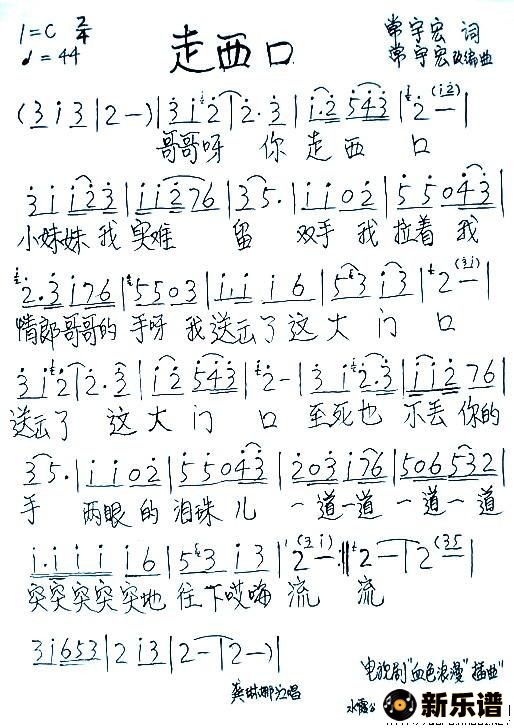 1=C 2/4
♩=44
走西口
常宇宏 词
常宇宏改编曲
(3 i 3 | 2 — ) | 3 i 2 | 2· 3 | i·2 5 4 3 | 2 — (i 2) |
哥哥呀 你 走 西 口
3 i i 2 3 | i i 2 7 6 | 3 5· | i i 0 2 | 5 5 0 4 3 |
小妹妹 我 实难 留 双手 我 拉着 我
2·3 i 7 6 | 5 5 0 3 | i·i i 6 | 5 3 i 3 | 2 — (3 i) |
情郎哥哥的 手呀 我 送出了 这 大 门 口
3 i 2 | 2· 3 | i 2 5 4 3 | 2 — | 3 i 2·3 | i i 2 7 6 |
送出了 这 大 门 口 至死也 不丢你的
3 5· | i i 0 2 | 5 5 0 4 3 | 2 0 3 i 7 6 | 5 0 6 5 3 2 |
手 两眼 的 泪珠 儿 一道一道 一道一道
i·i i i i 6 | 5 3 i 3 | 2 — (3 i) :|| 2 — | 2 (3 5
突突突突突地 往下哎嗨 流 流
3 i 6 5 3 | 2 i 3 | 2 — | 2 — ) |
电视剧"血色浪漫"插曲
龚琳娜演唱
新乐谱